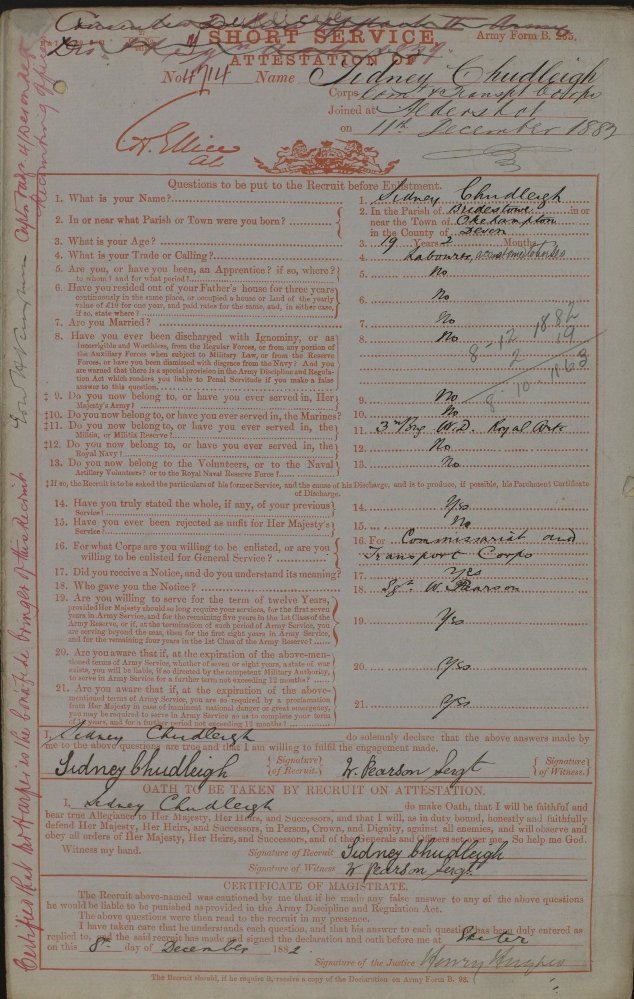 SHORT SERVICE
Army Form B. 265.
ATTESTATION OF
No 4714 Name Sidney Chudleigh
Corps Comt & Transpt Corps
Joined at Aldershot
on 11th December 1882
Questions to be put to the Recruit before Enlistment.
1. What is your Name? 1. Sidney Chudleigh
2. In or near what Parish or Town were you born? 2. In the Parish of Bridestowe in or
near the Town of Okehampton
in the County of Devon
3. What is your Age? 3. 19 Years 2 Months
4. What is your Trade or Calling? 4. Labourer, accustomed to
5. Are you, or have you been, an Apprentice? if so, where? 5. No
to whom? and for what period?
6. Have you resided out of your Father's house for three years
continuously in the same place, or occupied a house or Land of the yearly
value of £10 for one year, and paid rates for the same, and, in either case,
if so, state where? 6. No
7. Are you Married? 7. No
8. Have you ever been discharged with Ignominy, or as 8. No
Incorrigible and Worthless, from the Regular Forces, or from any portion of
the Auxiliary Forces when subject to Military Law, or from the Reserve
Forces, or have you been dismissed with disgrace from the Navy? And you
are warned that there is a special provision in the Army Discipline and Regula-
tion Act which renders you liable to Penal Servitude if you make a false
answer to this question.
8-12 1882
2 19
8 10 1163
‡ 9. Do you now belong to, or have you ever served in, Her
Majesty's Army? 9. No
‡10. Do you now belong to, or have you ever served, in the Marines? 10. No
‡11. Do you now belong to, or have you ever served, in the
Militia, or Militia Reserve? 11. 3rd Brig W.D. Royal Arty
‡12. Do you now belong to, or have you ever served, in the
Royal Navy? 12. No
13. Do you now belong to the Volunteers, or to the Naval
Artillery Volunteers? or to the Royal Naval Reserve Force? 13. No
‡If so, the Recruit is to be asked the particulars of his former Service, and the cause of his Discharge, and is to produce, if possible, his Parchment Certificate
of Discharge.
14. Have you truly stated the whole, if any, of your previous
Service? 14. Yes
15. Have you ever been rejected as unfit for Her Majesty's
Service? 15. No
16. For what Corps are you willing to be enlisted, or are you
willing to be enlisted for General Service? 16. For Commissariat and
Transport Corps
17. Did you receive a Notice, and do you understand its meaning? 17. Yes
18. Who gave you the Notice? 18. Sgt. W. Pearson
19. Are you willing to serve for the term of twelve Years,
provided Her Majesty should so long require your services, for the first seven
years in Army Service, and for the remaining five years in the 1st Class of the
Army Reserve, or if, at the termination of such period of Army Service, you
are serving beyond the seas, then for the first eight years in Army Service,
and for the remaining four years in the 1st Class of the Army Reserve? 19. Yes
20. Are you aware that if, at the expiration of the above-men-
tioned terms of Army Service, whether of seven or eight years, a state of war
exists, you will be liable, if so directed by the competent Military Authority,
to serve in Army Service for a further term not exceeding 12 months? 20. Yes
21. Are you aware that if, at the expiration of the above-
mentioned terms of Army Service, you are so required by a proclamation
from Her Majesty in case of imminent national danger or great emergency,
you may be required to serve in Army Service so as to complete your term
of 12 years, and for a further period not exceeding 12 months? 21. Yes
I, Sidney Chudleigh do solemnly declare that the above answers made by
me to the above questions are true and that I am willing to fulfil the engagement made.
Sidney Chudleigh { Signature of Recruit. W. Pearson Sergt { Signature of Witness.
OATH TO BE TAKEN BY RECRUIT ON ATTESTATION.
I, Sidney Chudleigh do make Oath, that I will be faithful and
bear true Allegiance to Her Majesty, Her Heirs, and Successors, and that I will, as in duty bound, honestly and faithfully
defend Her Majesty, Her Heirs, and Successors, in Person, Crown, and Dignity, against all enemies, and will observe and
obey all orders of Her Majesty, Her Heirs, and Successors, and of the Generals and Officers set over me. So help me God.
Witness my hand. Signature of Recruit Sidney Chudleigh
Signature of Witness W Pearson Sergt.
CERTIFICATE OF MAGISTRATE.
The Recruit above-named was cautioned by me that if he made any false answer to any of the above questions
he would be liable to be punished as provided in the Army Discipline and Regulation Act.
The above questions were then read to the recruit in my presence.
I have taken care that he understands each question, and that his answer to each question has been duly entered as
replied to, and the said recruit has made and signed the declaration and oath before me at Exeter
on this 8th day of December 1882.
Signature of the Justice Henry Hughes
The Recruit should, if he require it, receive a copy of the Declaration on Army Form B. 93.